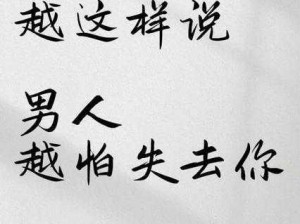 越这样说
男人
越怕失去你